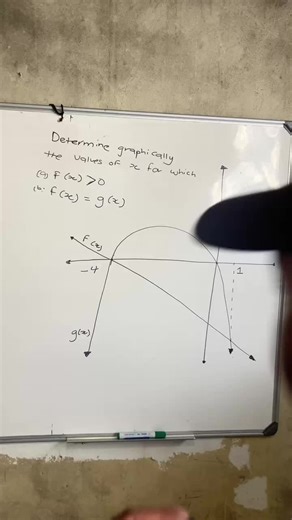 y
Determine graphically
the values of x for which
(a) f(x) > 0
(b) f(x) = g(x)
f(x)
-4
1
g(x)